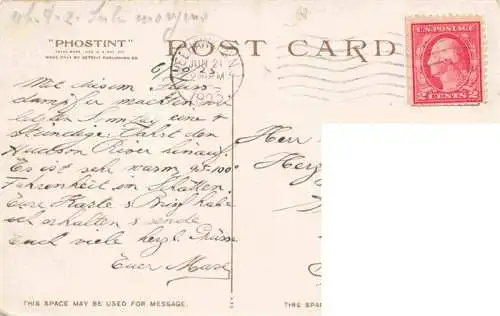 "PHOSTINT"
POST CARD
MADE ONLY BY DETROIT PUBLISHING CO.
JUN 21
1923
U.S. POSTAGE
2 CENTS 2
Mit diesem Fluss-
dampfer machten wir
letzten Sonntag eine
stündige Fahrt den
Hudson River hinauf.
Es ist sehr warm 95-100°
Fahrenheit im Schatten.
Eure Karte & Brief habe
ich erhalten & sende
Euch viele herzl. Grüsse
Euer
Herr
Herz
THIS SPACE MAY BE USED FOR MESSAGE.
THIS SPACE